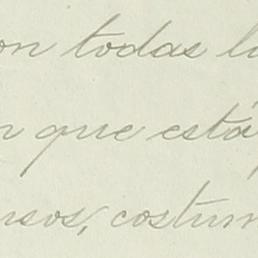 on todas l
n que está
rsos, costum